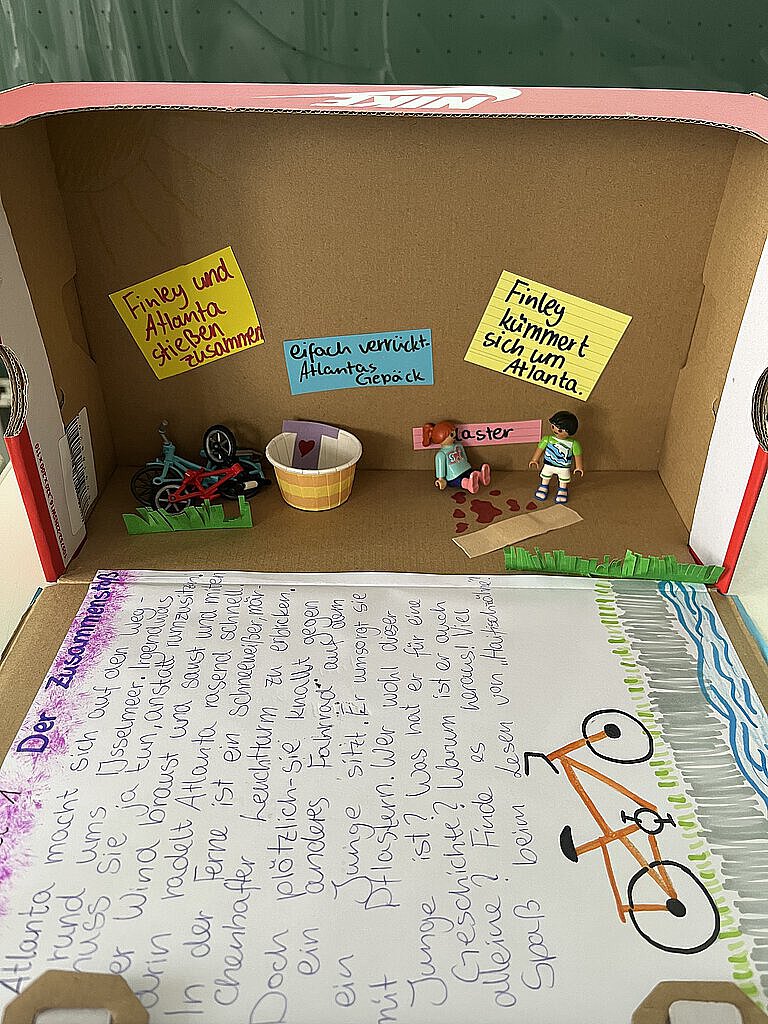 NIKE
Finley und
Atlanta
stießen
zusammen
eifach verrückt-
Atlantas
Gepäck
Finley
kümmert
sich um
Atlanta.
laster
1 Der Zusammenstoß
Atlanta macht sich auf den Weg -
rund ums IJsselmeer. Irgendwas
muss sie ja tun, anstatt rumzusitzen.
Der Wind braust und saust und mitten
drin radelt Atlanta rasend schnell.
In der Ferne ist ein schneeweißer, mär-
chenhafter Leuchtturm zu erblicken.
Doch plötzlich - sie knallt gegen
ein anderes Fahrrad auf dem
ein Junge sitzt. Er umsorgt sie
mit Pflastern. Wer wohl dieser
Junge ist? Was hat er für eine
Geschichte? Warum ist er auch
alleine? Finde es heraus! Viel
Spaß beim Lesen von